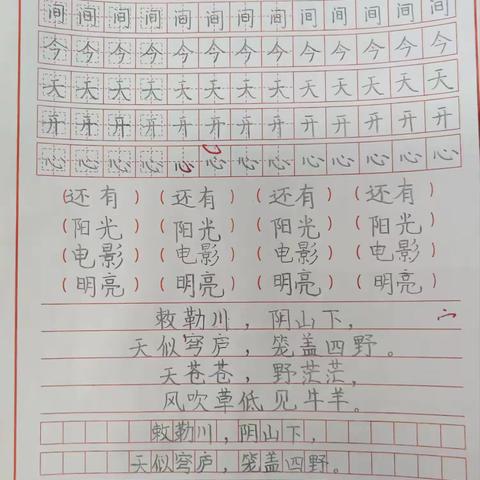 间间间间间间间间间间间间间
今今今今今今今今今今今今今
天天天天天天天天天天天天天
开开开开开开开开开开开开开
心心心心心心心心心心心心心
(还有) (还有) (还有) (还有)
(阳光) (阳光) (阳光) (阳光)
(电影) (电影) (电影) (电影)
(明亮) (明亮) (明亮) (明亮)
敕勒川，阴山下，
天似穹庐，笼盖四野。
天苍苍，野茫茫，
风吹草低见牛羊。
敕勒川，阴山下，
天似穹庐，笼盖四野。